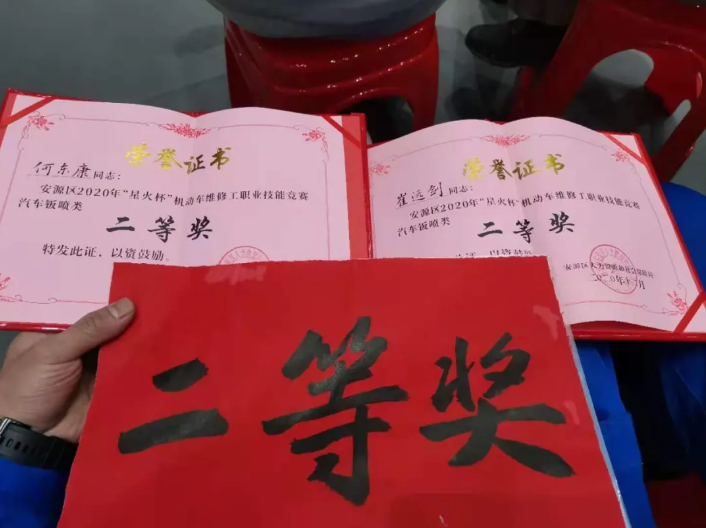 荣誉证书
何东康同志：
安源区2020年“星火杯”机动车维修工职业技能竞赛
汽车钣喷类
二等奖
特发此证，以资鼓励。
荣誉证书
崔远剑同志：
安源区2020年“星火杯”机动车维修工职业技能竞赛
汽车钣喷类
二等奖
以资鼓励。
二等奖